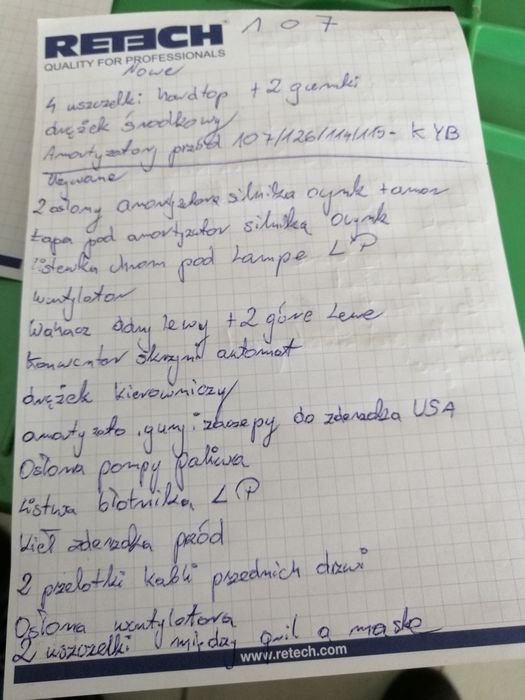 RETECH 107
QUALITY FOR PROFESSIONALS
Nowe
4 uszczelki hardtop + 2 gumki
drążek środkowy
Amortyzatory przód 107/126/114/115 - KYB
Używane
2 osłony amortyzatora silnika ocynk + amor
Łapa pod amortyzator silnika ocynk
listewka chrom pod Lampe L P
wentylator
Wahacz dolny lewy + 2 górne Lewe
konwentor skrzyni automat
drążek kierowniczy
amortyzato. gumi zaczepy do zderzaka USA
Osłona pompy paliwa
Listwa błotnika L P
kieł zderzaka przód
2 przelotki kabli przednich drzwi
Osłona wentylatora
2 uszczelki między gril a maskę
www.retech.com